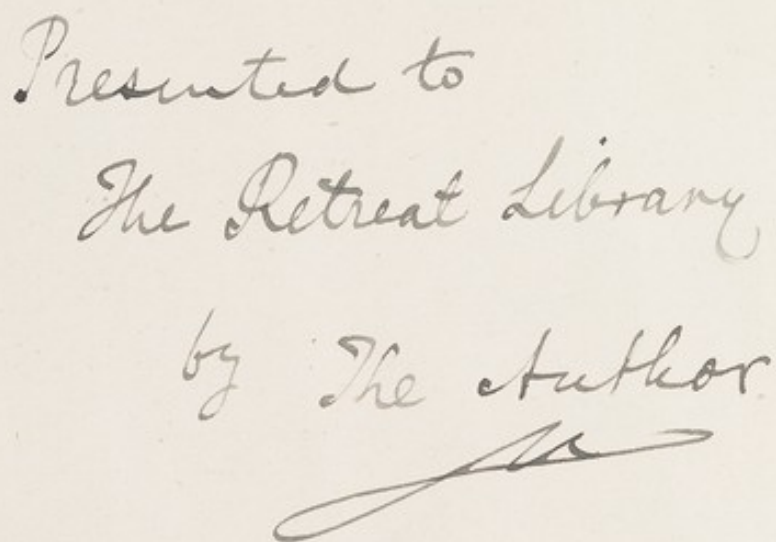 Presented to
The Retreat Library
by The Author